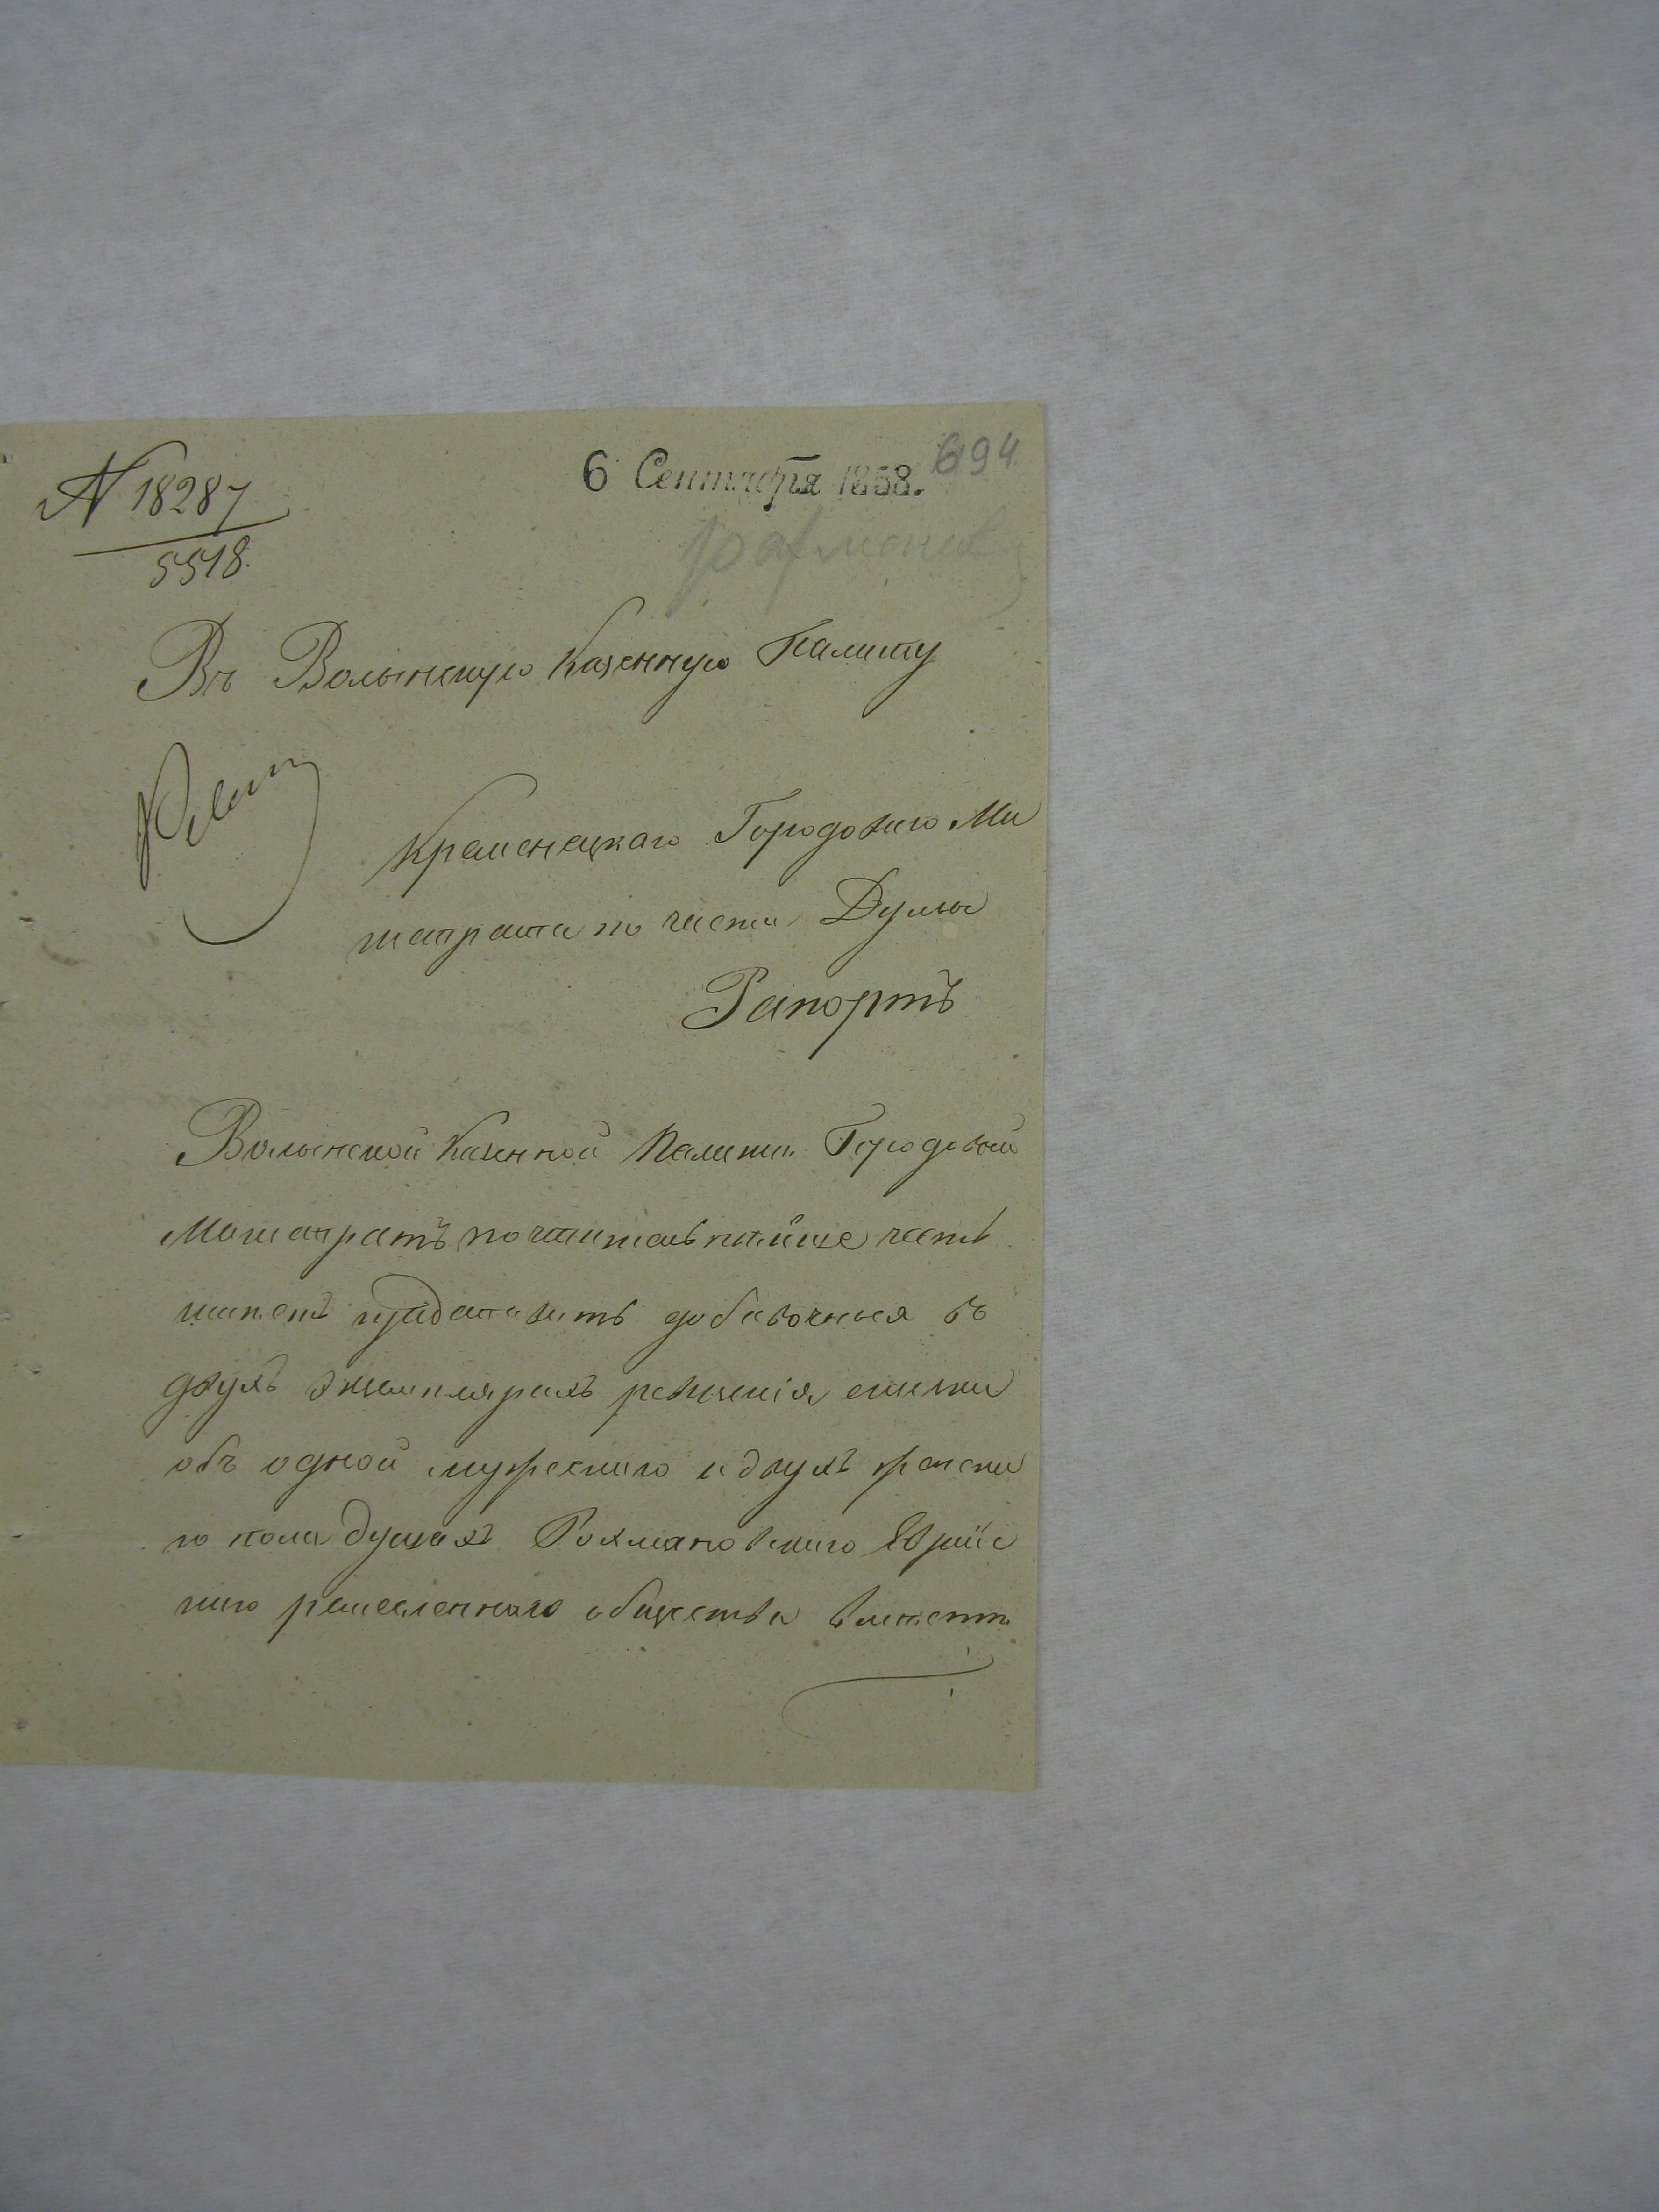 6 Сентября 1858. 694
N 18287
5518.
рахманов
Въ Волынскую Казенную Палату
Кременецкаго Городоваго Ма
гистрата по части Думы
Рапортъ
Волынской Казенной Палатѣ Городовой
Магистратъ почтительнѣйше честь
имѣетъ представить добавочныя въ
двухъ экземплярахъ ревизскія сказки
объ одной мужескаго и двухъ женска
го пола душахъ Рохмановскаго Еврейс
каго ремесленнаго общества вмѣстѣ